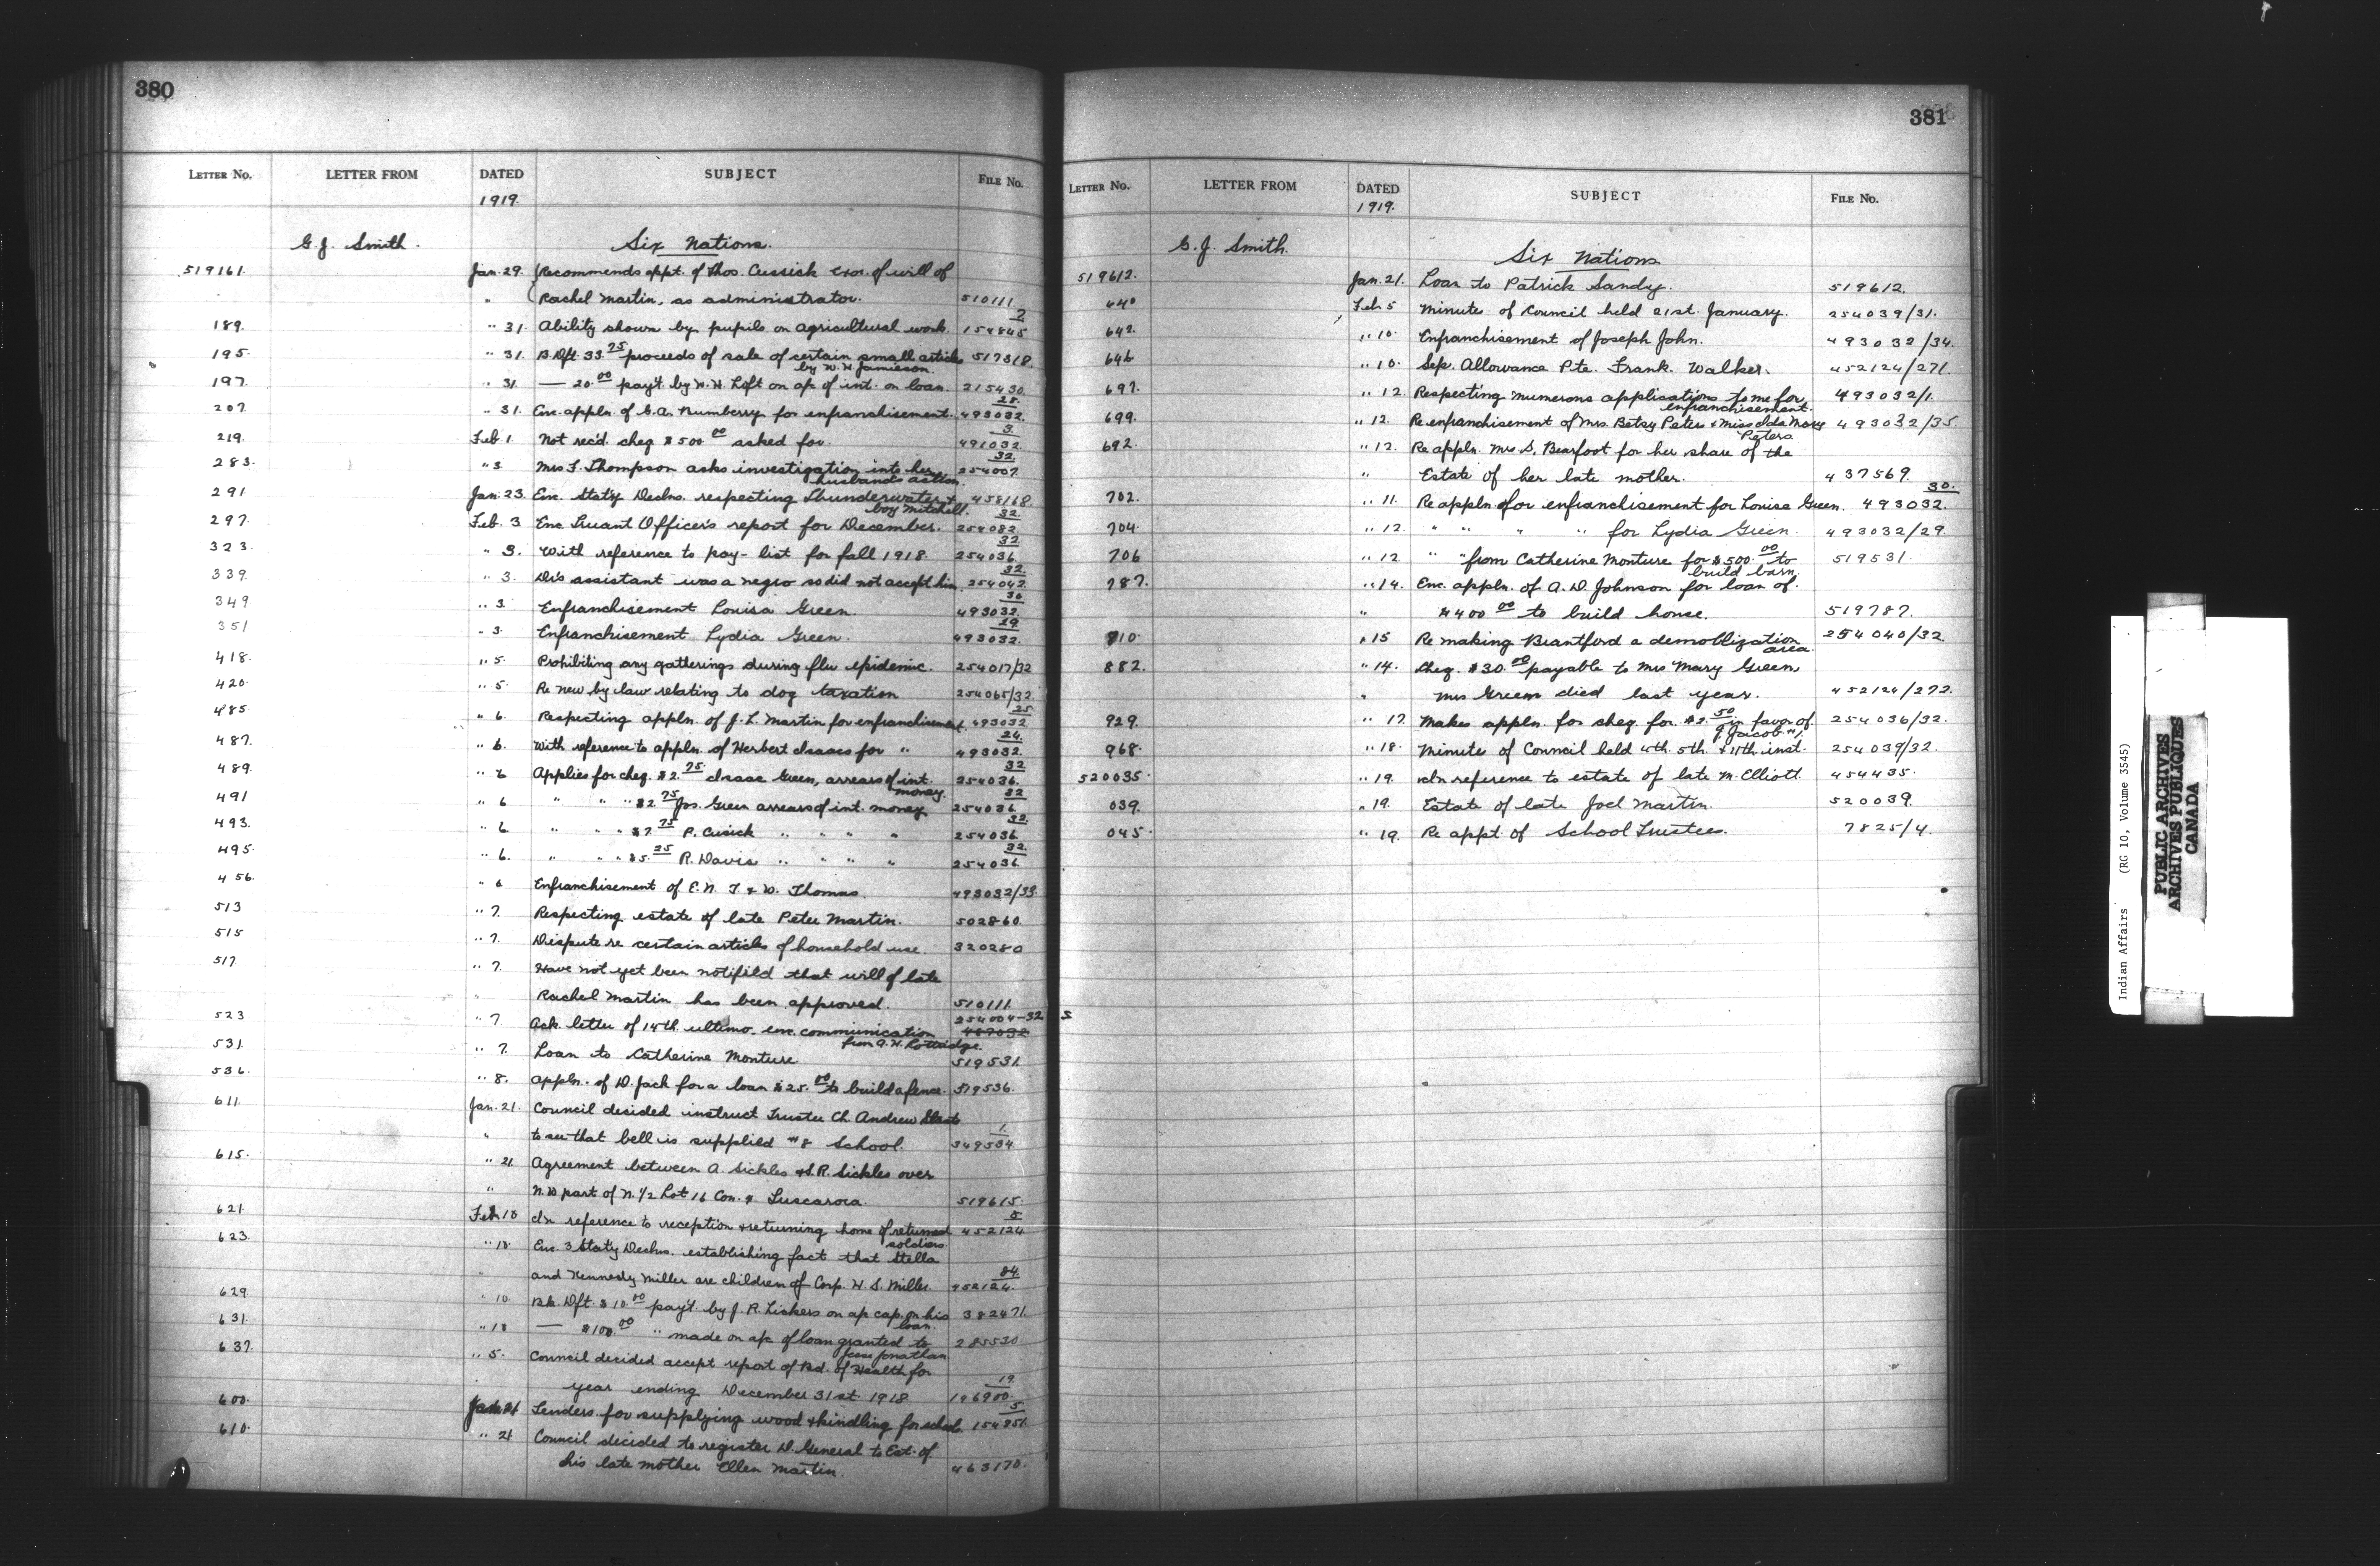 380
LETTER No. LETTER FROM DATED SUBJECT FILE No.
1919.
G. J. Smith. Six Nations.
519161. Jan. 29. Recommends appt. of Thos. Cussick Exor. of will of
" Rachel Martin, as administrator. 510111.
189. " 31. Ability shown by pupils on agricultural work. 154845/2
195. " 31. B. Dft. 33.75 proceeds of sale of certain small articles 517318.
by W. H. Jamieson.
197. " 31. — 20.00 pay't by W. H. Loft on a/c of int. on loan. 215430.
207. " 31. Enc. appln. of G. A. Numberry for enfranchisement. 493032/28.
219. Feb. 1. Not rec'd. cheq. $500.00 asked for. 491032/3.
283. " 3. Mrs F. Thompson asks investigation into her 254007/32.
husband's action.
291. Jan. 23. Enc. Stat'y Declns. respecting Thunderwater & 458168.
boy Mitchell.
297. Feb. 3 Enc Truant Officer's report for December. 254082/32.
323. " 3. With reference to pay-list for fall 1918. 254036/32
339. " 3. Dr's assistant was a negro so did not accept him. 254042/32.
349 " 3. Enfranchisement Louisa Green. 493032/30
351 " 3. Enfranchisement Lydia Green. 493032/29.
418. " 5. Prohibiting any gatherings during flu epidemic. 254017/32
420. " 5. Re new by law relating to dog taxation 254065/32
485. " 6. Respecting appln. of J. L. Martin for enfranchisement. 493032/25
487. " 6. With reference to appln. of Herbert Isaacs for " 493032/24.
489. " 6 Applies for cheq. $2.75 Isaac Green, arrears of int. 254036/32
money.
491 " 6 " " " $2.75 Jos. Green arrears of int. money 254036/32
493. " 6. " " " $7.75 P. Cusick " " " " 254036/32.
495. " 6. " " " $5.25 R. Davis " " " " 254036/32.
456. " 6 Enfranchisement of E. N. T. & W. Thomas. 493032/33.
513 " 7. Respecting estate of late Peter Martin. 502860.
515 " 7. Dispute re certain articles of household use. 320280
517. " 7. Have not yet been notifild that will of late
" Rachel Martin has been approved. 510111.
523 " 7. Ack. letter of 14th. ultimo enc. communication 254004-32
from A. H. Lottridge.
531. " 7. Loan to Catherine Monture 519531.
536. " 8. Appln. of D. Jack for a loan $25.00 to build a fence. 519536.
611. Jan. 21. Council decided instruct Trustee Ch. Andrew Staats
" to see that bell is supplied #8 School. 349534/1.
615. " 21. Agreement between A. Sickles & S. R. Sickles over
" N. W part of N. 1/2 Lot 16 Con. 4 Tuscarora. 519615.
621. Feb. 10 In reference to reception & returning home of returned 452124/5
soldiers.
623. " 10. Enc. 3 Stat'y Declns. establishing fact that Stella
" and Kennedy Miller are children of Corp. H. S. Miller. 452124/84.
629. " 10. Bk. Dft. $10.00 pay't. by J. R. Lickers on a/c cap. on his 382471.
loan.
631. " 10 — $100.00 " made on a/c of loan granted to 285530
Jesse Jonathan.
637. " 5. Council decided accept report of Bd. of Health for
year ending December 31st. 1918 196900/19.
600. Jan 21 Tenders for supplying wood & kindling for school. 154851/5.
610. " 21 Council decided to register D. General to Est. of
his late mother Ellen Martin. 463170.
381
LETTER No. LETTER FROM DATED SUBJECT FILE No.
1919.
G. J. Smith. Six Nations
519612. Jan. 21. Loan to Patrick Sandy. 519612.
640 Feb 5 Minutes of Council held 21st. January. 254039/31.
642. " 10. Enfranchisement of Joseph John. 493032/34.
646 " 10. Sep. Allowance Pte. Frank Walker. 452124/271.
697. " 12. Respecting numerous applications to me for 493032/1.
enfranchisement.
699. " 12. Re enfranchisement of Mrs. Betsy Peters & Miss Ida Mary 493032/35
Peters
692. " 12. Re appln. Mrs S. Bearfoot for her share of the
" Estate of her late mother. 437569.
702. " 11. Re appln. for enfranchisement for Louisa Green. 493032/30.
704. " 12. " " " " for Lydia Green 493032/29.
706 " 12 " " from Catherine Monture for $500.00 to 519531
build barn.
787. " 14. Enc. appln. of A. D. Johnson for loan of
" $400.00 to build house. 519787.
810. " 15 Re making Brantford a demoblization 254040/32.
area.
882. " 14. Cheq. $30.00 payable to Mrs Mary Green
" Mrs Green died last year. 452124/272.
929. " 17. Makes appln. for cheq. for $2.50 in favor of 254036/32.
J. Jacob #1.
968. " 18. Minutes of Council held 4th. 5th. & 11th inst. 254039/32.
520035. " 19. In reference to estate of late M. Elliott. 454435.
039. " 19. Estate of late Joel Martin. 520039.
045. " 19. Re appt. of School Trustees. 7825/4.
Indian Affairs (RG 10, Volume 3545)
PUBLIC ARCHIVES
ARCHIVES PUBLIQUES
CANADA